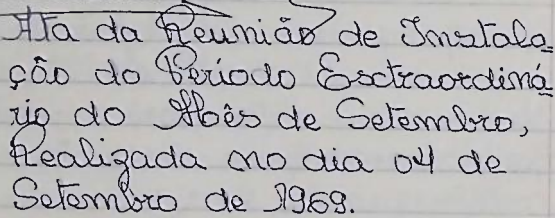 Ata da Reunião de Instala-
ção do Período Esctraordiná-
rio do Mês de Setembro,
Realizada no dia 04 de
Setembro de 1969.